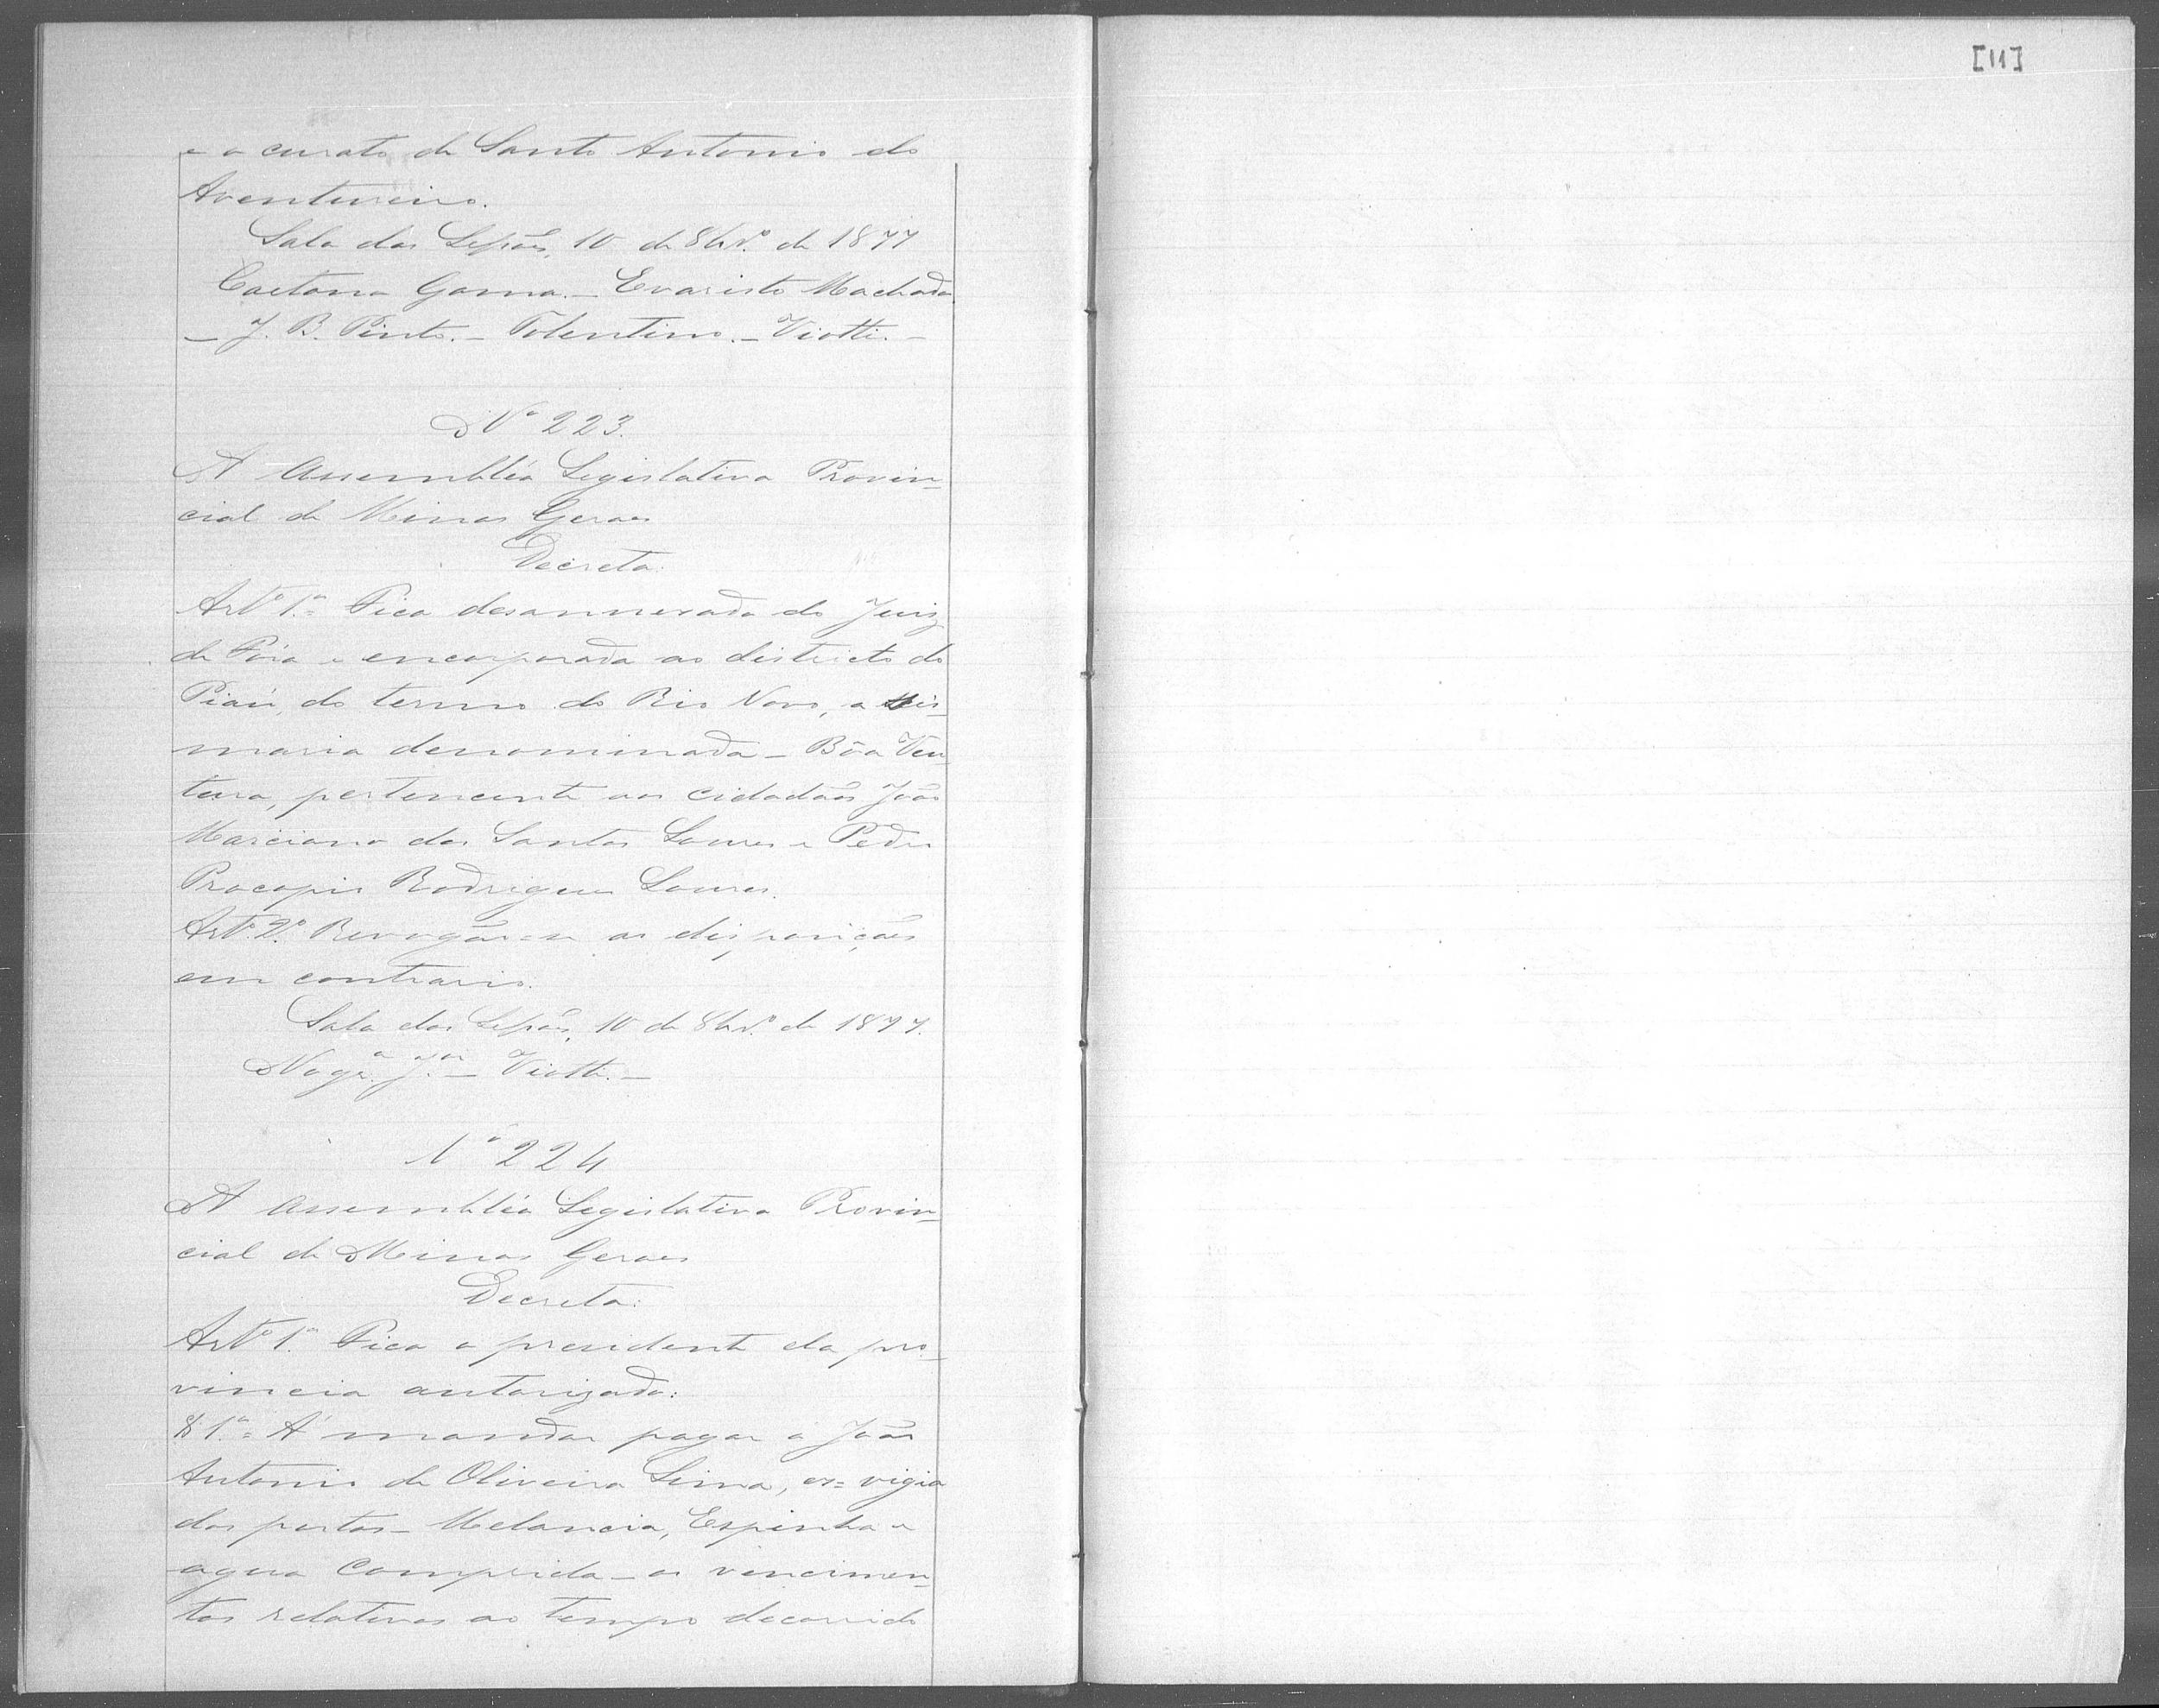 e o curato de Santo Antonio do
Aventureiro.
Sala das Sessões, 10 de 8br.º de 1877
Caetano Gama. _ Evaristo Machado
_ J. B. Pinto. _ Tolentino. _ Viotti. _
Nº 223.
A Assembléa Legislativa Provin_
cial de Minas Geraes
Decreta:
Artº 1.º = Fica desannexada do Juiz
de Fóra e encorporada ao districto do
Piáu, do termo do Rio Novo, a Sis_
maria denominada _ Bôa Ven_
tura, pertencente aos cidadãos João
Marciano dos Santos Loures e Pedro
Procopio Rodrigues Loures.
Artº 2º Revogão-se as disposições
em contrario.
Sala das Sessões, 10 de 8br.º de 1877.
Nogrª. Jor. _ Viotti. _
Nº 224
A Assembléa Legislativa Provin_
cial de Minas Geraes
Decreta:
Artº 1.º Fica o presidente da pro_
vincia autorizado:
§ 1.º = A' mandar pagar a João
Antonio de Oliveira Lima, ex=vigia
dos portos _ Melancia, Espinha e
agua Comprida _ os vencimen_
tos relativos ao tempo decorrido
[11]